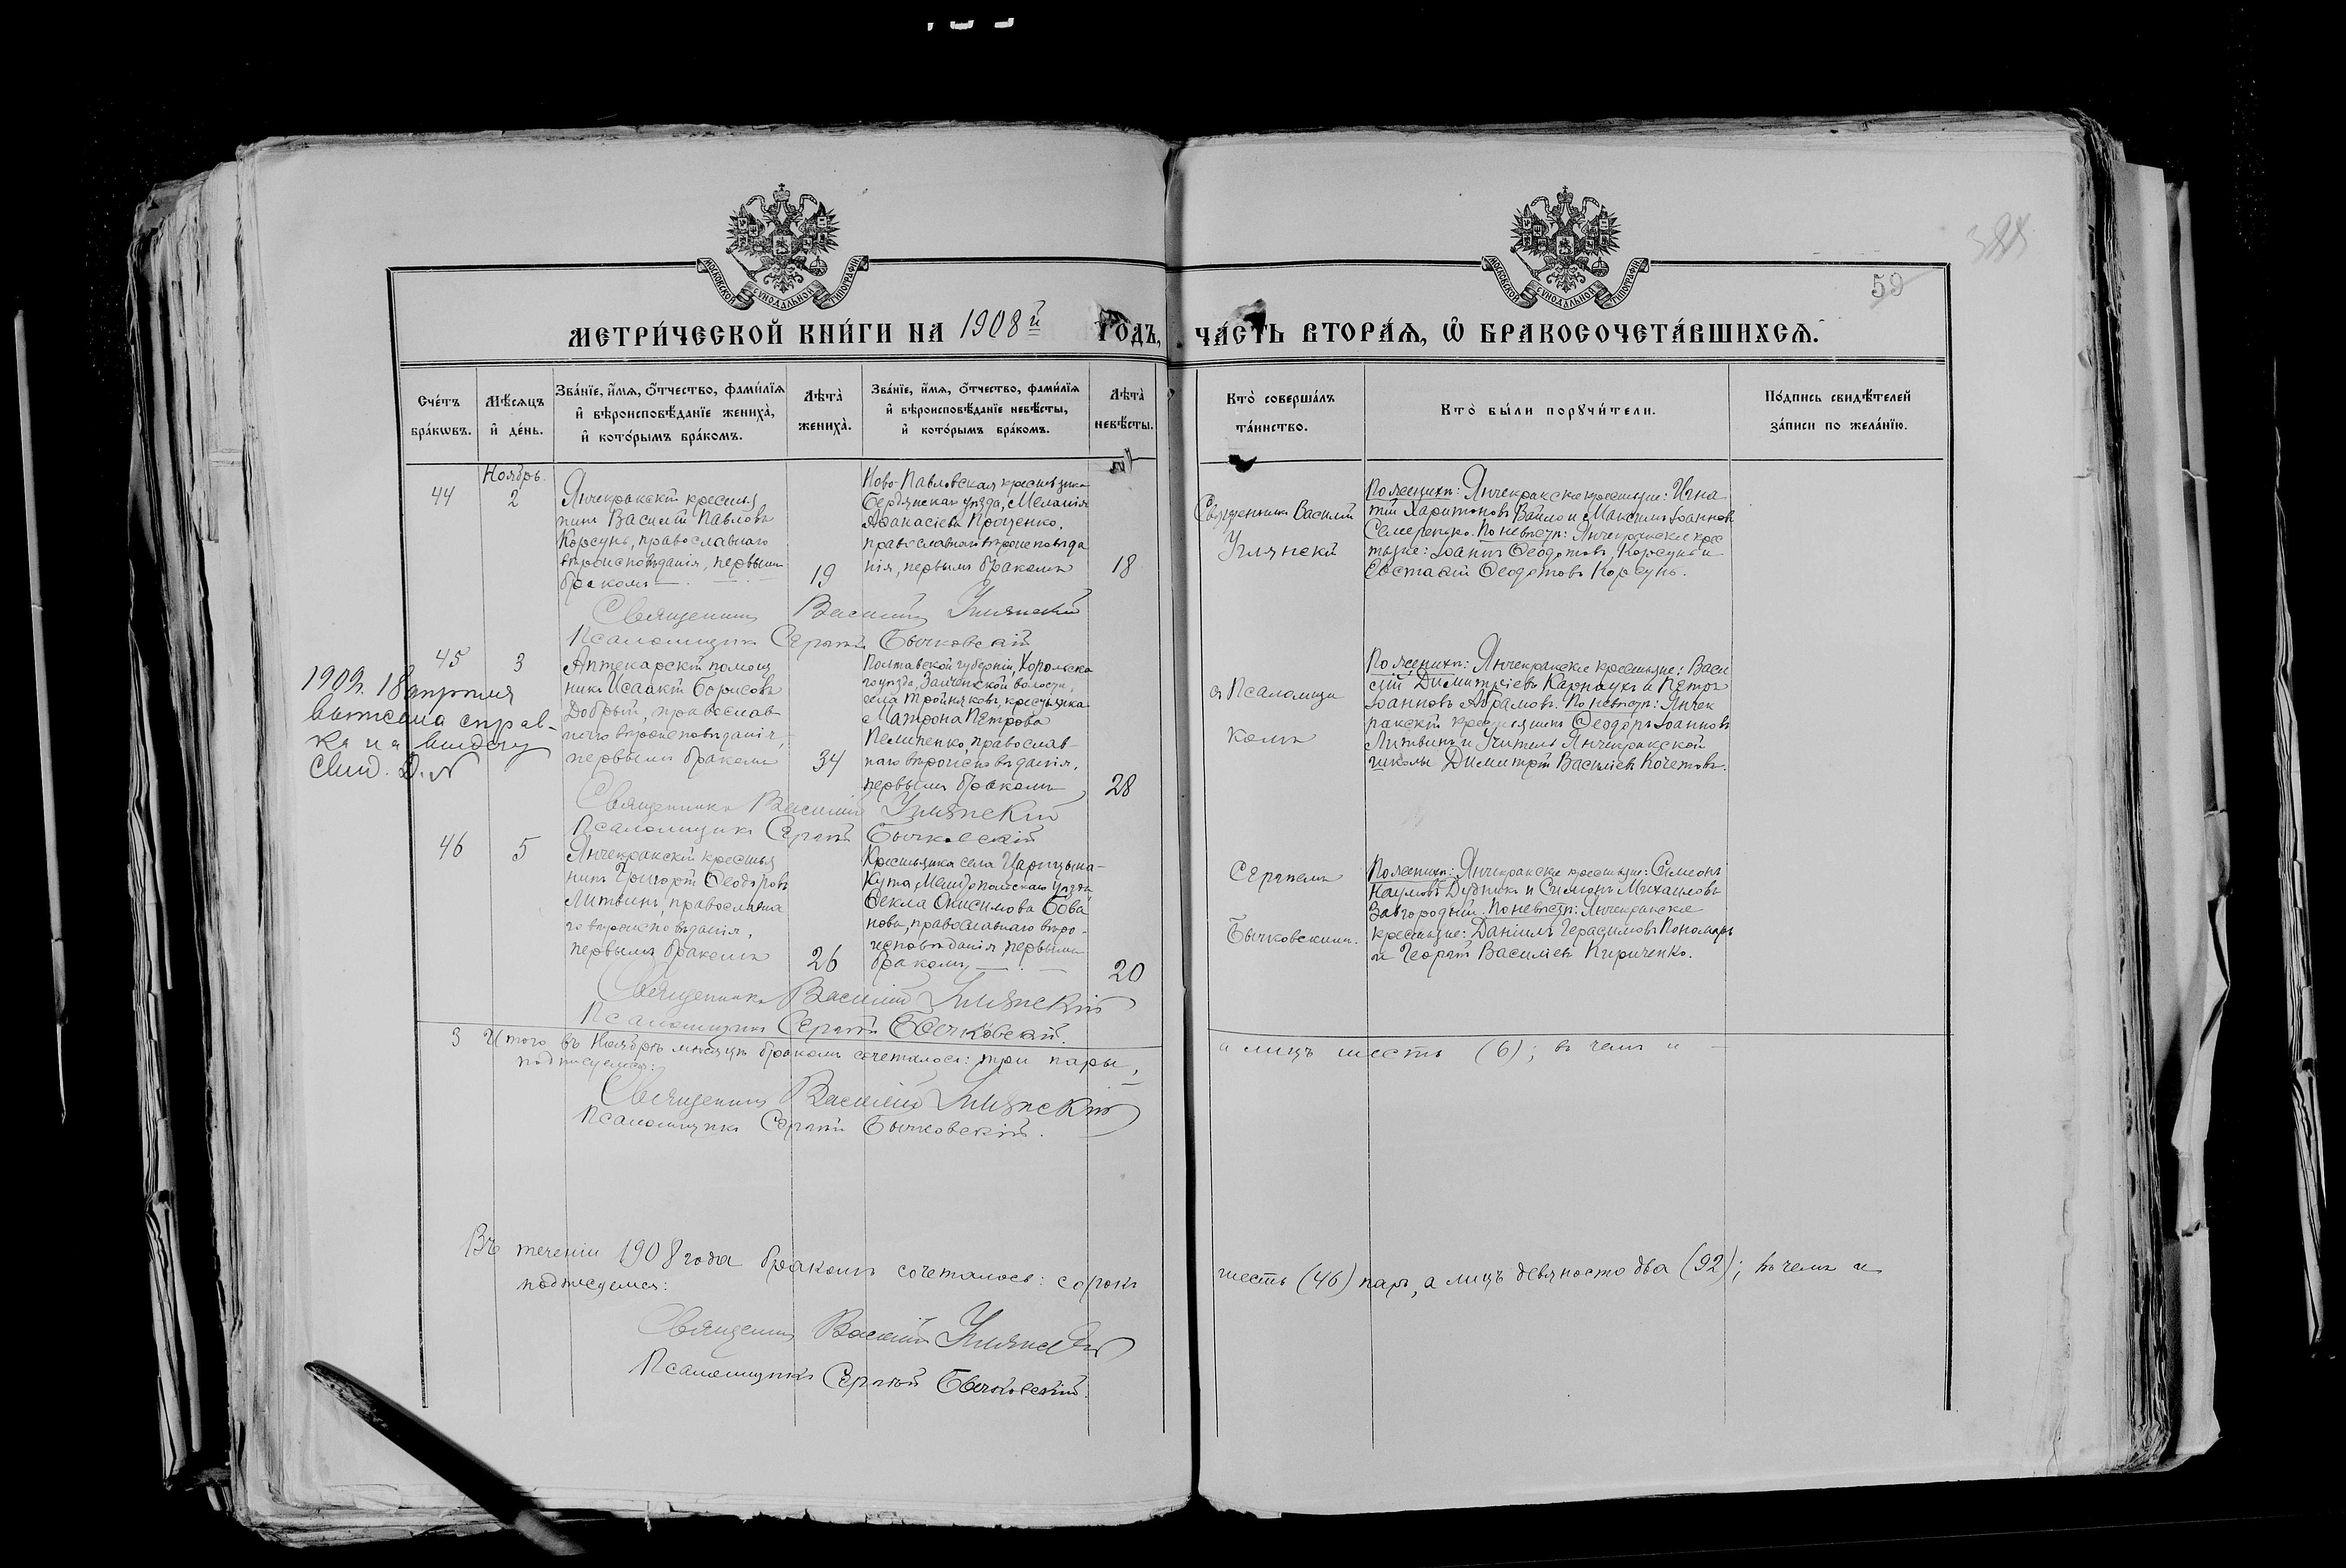 МОСКОВСКОЙ СУНОДАЛЬНОЙ ТИПОГРАФІИ
МОСКОВСКОЙ СУНОДАЛЬНОЙ ТИПОГРАФІИ
59
МЕТРИ́ЧЕСКОЙ КНИ́ГИ НА 1908й ГОДЪ,
ЧА́СТЬ ВТОРА́Я, Ѡ БРАКОСОЧЕТА́ВШИХСЯ.
Сче́тъ
бра́кѡвъ.
Мѣ́сяцъ
и҆ де́нь.
Зва́нїе, и҆́мя, ѻ҆́тчество, фами́лїя
и҆ вѣроисповѣ́данїе жениха̀,
и҆ кото́рымъ бра́комъ.
Лѣта̀
жениха̀.
Зва́нїе, и҆́мя, ѻ҆́тчество, фами́лїя
и҆ вѣроисповѣ́данїе невѣ́сты,
и҆ кото́рымъ бра́комъ.
Лѣта̀
невѣ́сты.
Кто̀ соверша́лъ
та́инство.
Кто̀ бы́ли порꙋчи́тели.
По́дпись свидѣ́телей
за́писи по жела́нїю.
44
Ноябрь.
2
Янчекракскій крестья
нинъ Василій Павловъ
Корсунь, православнаго
вѣроисповѣданія, первымъ
бракомъ
19
Ново-Павловская крестьянка
Бердянскаго уѣзда, Меланія
Аѳанасіева Проценко,
православнаго вѣроисповѣда
нія, первымъ бракомъ
18
Священникъ Василій
Углянскій
По женихѣ: Янчекракскіе крестьяне: Игна
тій Харитоновъ Вайло и Максимъ Іоанновъ
Семеренко. По невѣстѣ: Янчекракскіе крес
тьяне: Іоаннъ Ѳеодотовъ Корсунь и
Евстаѳій Ѳеодотовъ Корсунь.
Священникъ Василій Углянскій
Псаломщикъ Сергій Бычковскій
45
3
Аптекарскій помощ
никъ Исаакій Борисовъ
Добрый, православ
наго вѣроисповѣданія,
первымъ бракомъ
34
Полтавской губерніи, Хорольска
го уѣзда, Заиченской волости,
села Тройняковъ, крестьянка
Матрона Петрова
Пелипенко, православ-
наго вѣроисповѣданія,
первымъ бракомъ
28
съ Псаломщи
комъ
По женихѣ: Янчекракскіе крестьяне: Васи
лій Димитріевъ Карнаухъ и Петръ
Іоанновъ Абрамовъ. По невѣстѣ: Янчек
ракскій крестьянинъ Ѳеодоръ Іоанновъ
Литвинъ и Учитель Янчекракской
школы Димитрій Васильевъ Кочетовъ.
1909г. 18 апрѣля
выписана справ-
ка и выдан
Свид.
Священникъ Василій Углянскій
Псаломщикъ Сергій Бычковскій
46
5
Янчекракскій крестья
нинъ Григорій Ѳеодоровъ
Литвинъ, православна
го вѣроисповѣданія,
первымъ бракомъ
26
Крестьянка села Царицына-
Кута Мелитопольскаго уѣзда
Ѳекла Онисимова Бова
нова, православнаго вѣро-
исповѣданія первымъ
бракомъ
20
Сергіемъ
Бычковскимъ.
По женихѣ: Янчекракскіе крестьяне: Симеонъ
Наумовъ Дудникъ и Симонъ Михаиловъ
Завгородный. По невѣстѣ: Янчекракскіе
крестьяне: Даніилъ Герасимовъ Пономарь
и Георгій Василіевъ Кириченко.
Священникъ Василій Углянскій
Псаломщикъ Сергій Бычковскій.
3 Итого въ Ноябрѣ мѣсяцѣ бракомъ сочеталось: три пары, а лицъ шесть (6); въ чемъ и
подписуемся:
Священникъ Василій Углянскій
Псаломщикъ Сергій Бычковскій.
Въ теченіи 1908 года бракомъ сочеталось: сорокъ шесть (46) паръ, а лицъ девяносто два (92); въ чемъ и
подписуемся:
Священникъ Василій Углянскій
Псаломщикъ Сергій Бычковскій.